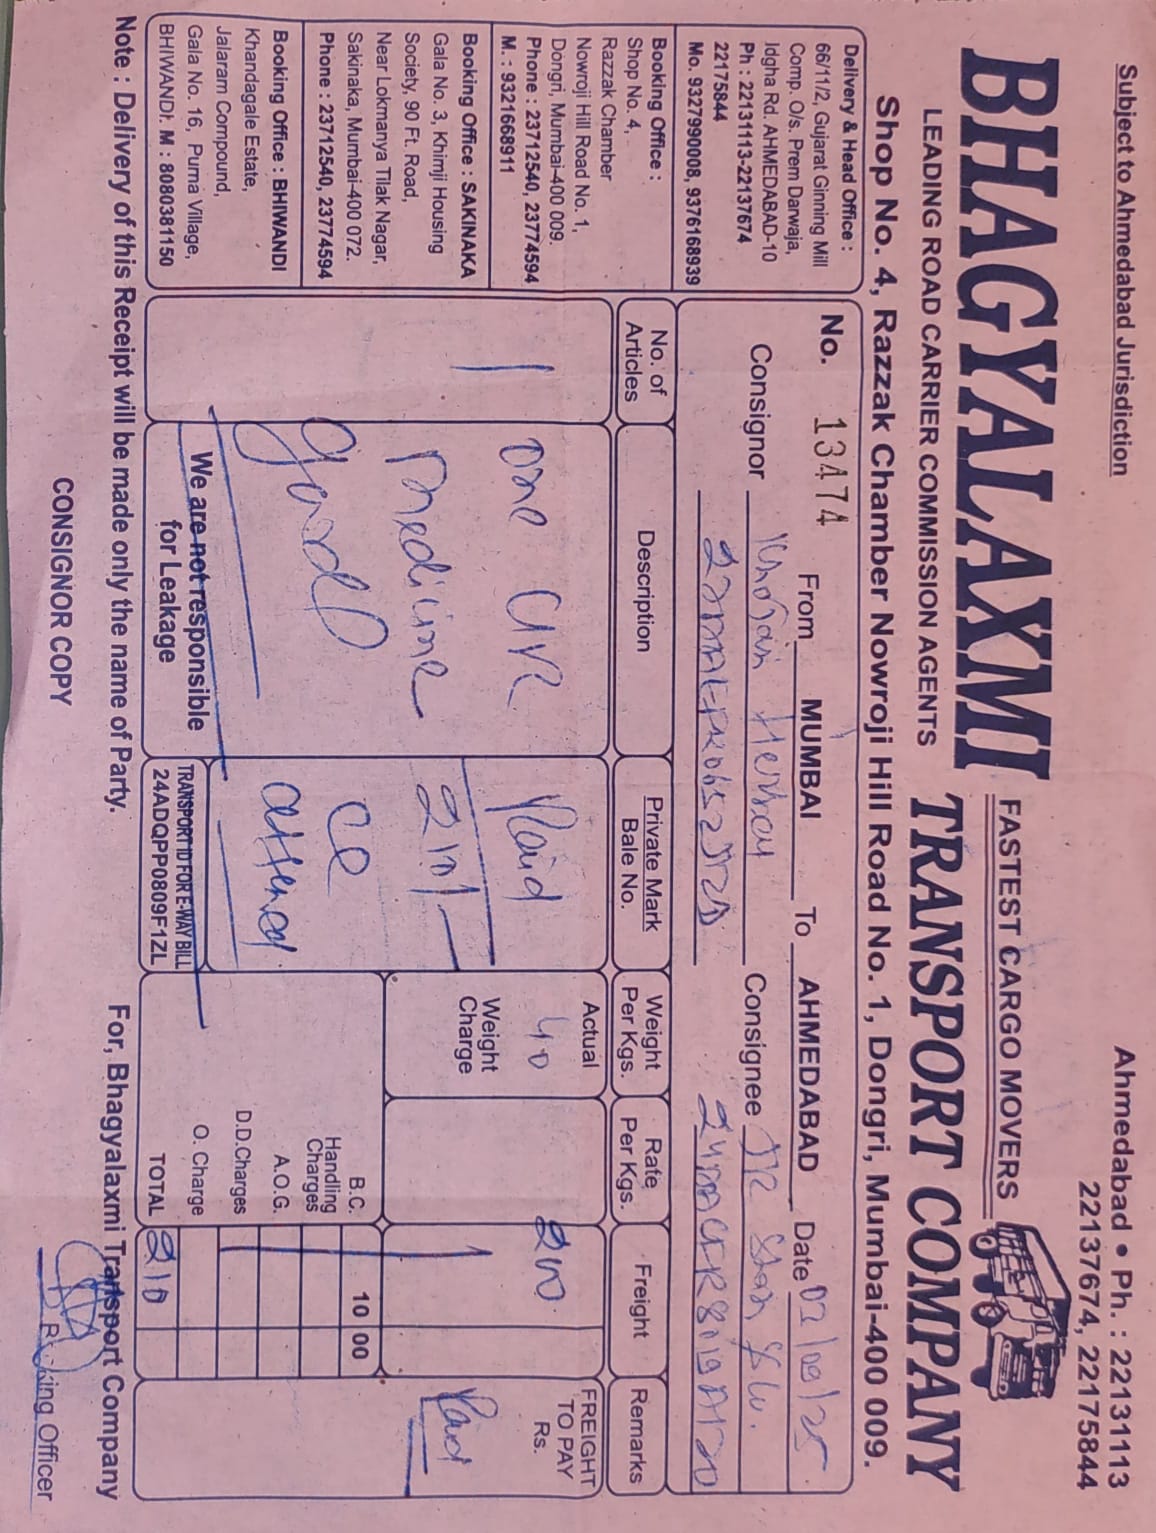 Subject to Ahmedabad Jurisdiction
Ahmedabad • Ph. : 22131113
22137674, 22175844
FASTEST CARGO MOVERS
BHAGYALAXMI TRANSPORT COMPANY
LEADING ROAD CARRIER COMMISSION AGENTS
Shop No. 4, Razzak Chamber Nowroji Hill Road No. 1, Dongri, Mumbai-400 009.
Delivery & Head Office :
66/11/2, Gujarat Ginning Mill
Comp. O/s. Prem Darwaja,
Idgha Rd. AHMEDABAD-10
Ph : 22131113-22137674
22175844
Mo. 9327990008, 9376168939
Booking Office :
Shop No. 4,
Razzak Chamber
Nowroji Hill Road No. 1,
Dongri, Mumbai-400 009.
Phone : 23712540, 23774594
M. : 9321668911
Booking Office : SAKINAKA
Gala No. 3, Khimji Housing
Society, 90 Ft. Road,
Near Lokmanya Tilak Nagar,
Sakinaka, Mumbai-400 072.
Phone : 23712540, 23774594
Booking Office : BHIWANDI
Khandagale Estate,
Jalaram Compound,
Gala No. 16, Purna Village,
BHIWANDI. M : 8080381150
No. 13474 From MUMBAI To AHMEDABAD Date 02/09/25
Consignor Consignee Shah
No. of Articles
Description
Private Mark
Bale No.
Weight
Per Kgs.
Rate
Per Kgs.
Freight
Remarks
1
one
medicine
good
Paid
210/-
attened
Actual
40
Weight
Charge
200
FREIGHT
TO PAY
Rs.
Paid
B.C. 10 00
Handling
Charges
A.O.G.
D.D.Charges
O. Charge
TOTAL 210
We are not responsible
for Leakage
TRANSPORT ID FOR E-WAY BILL
24ADQPP0809F1ZL
Note : Delivery of this Receipt will be made only the name of Party.
For, Bhagyalaxmi Transport Company
CONSIGNOR COPY
Booking Officer